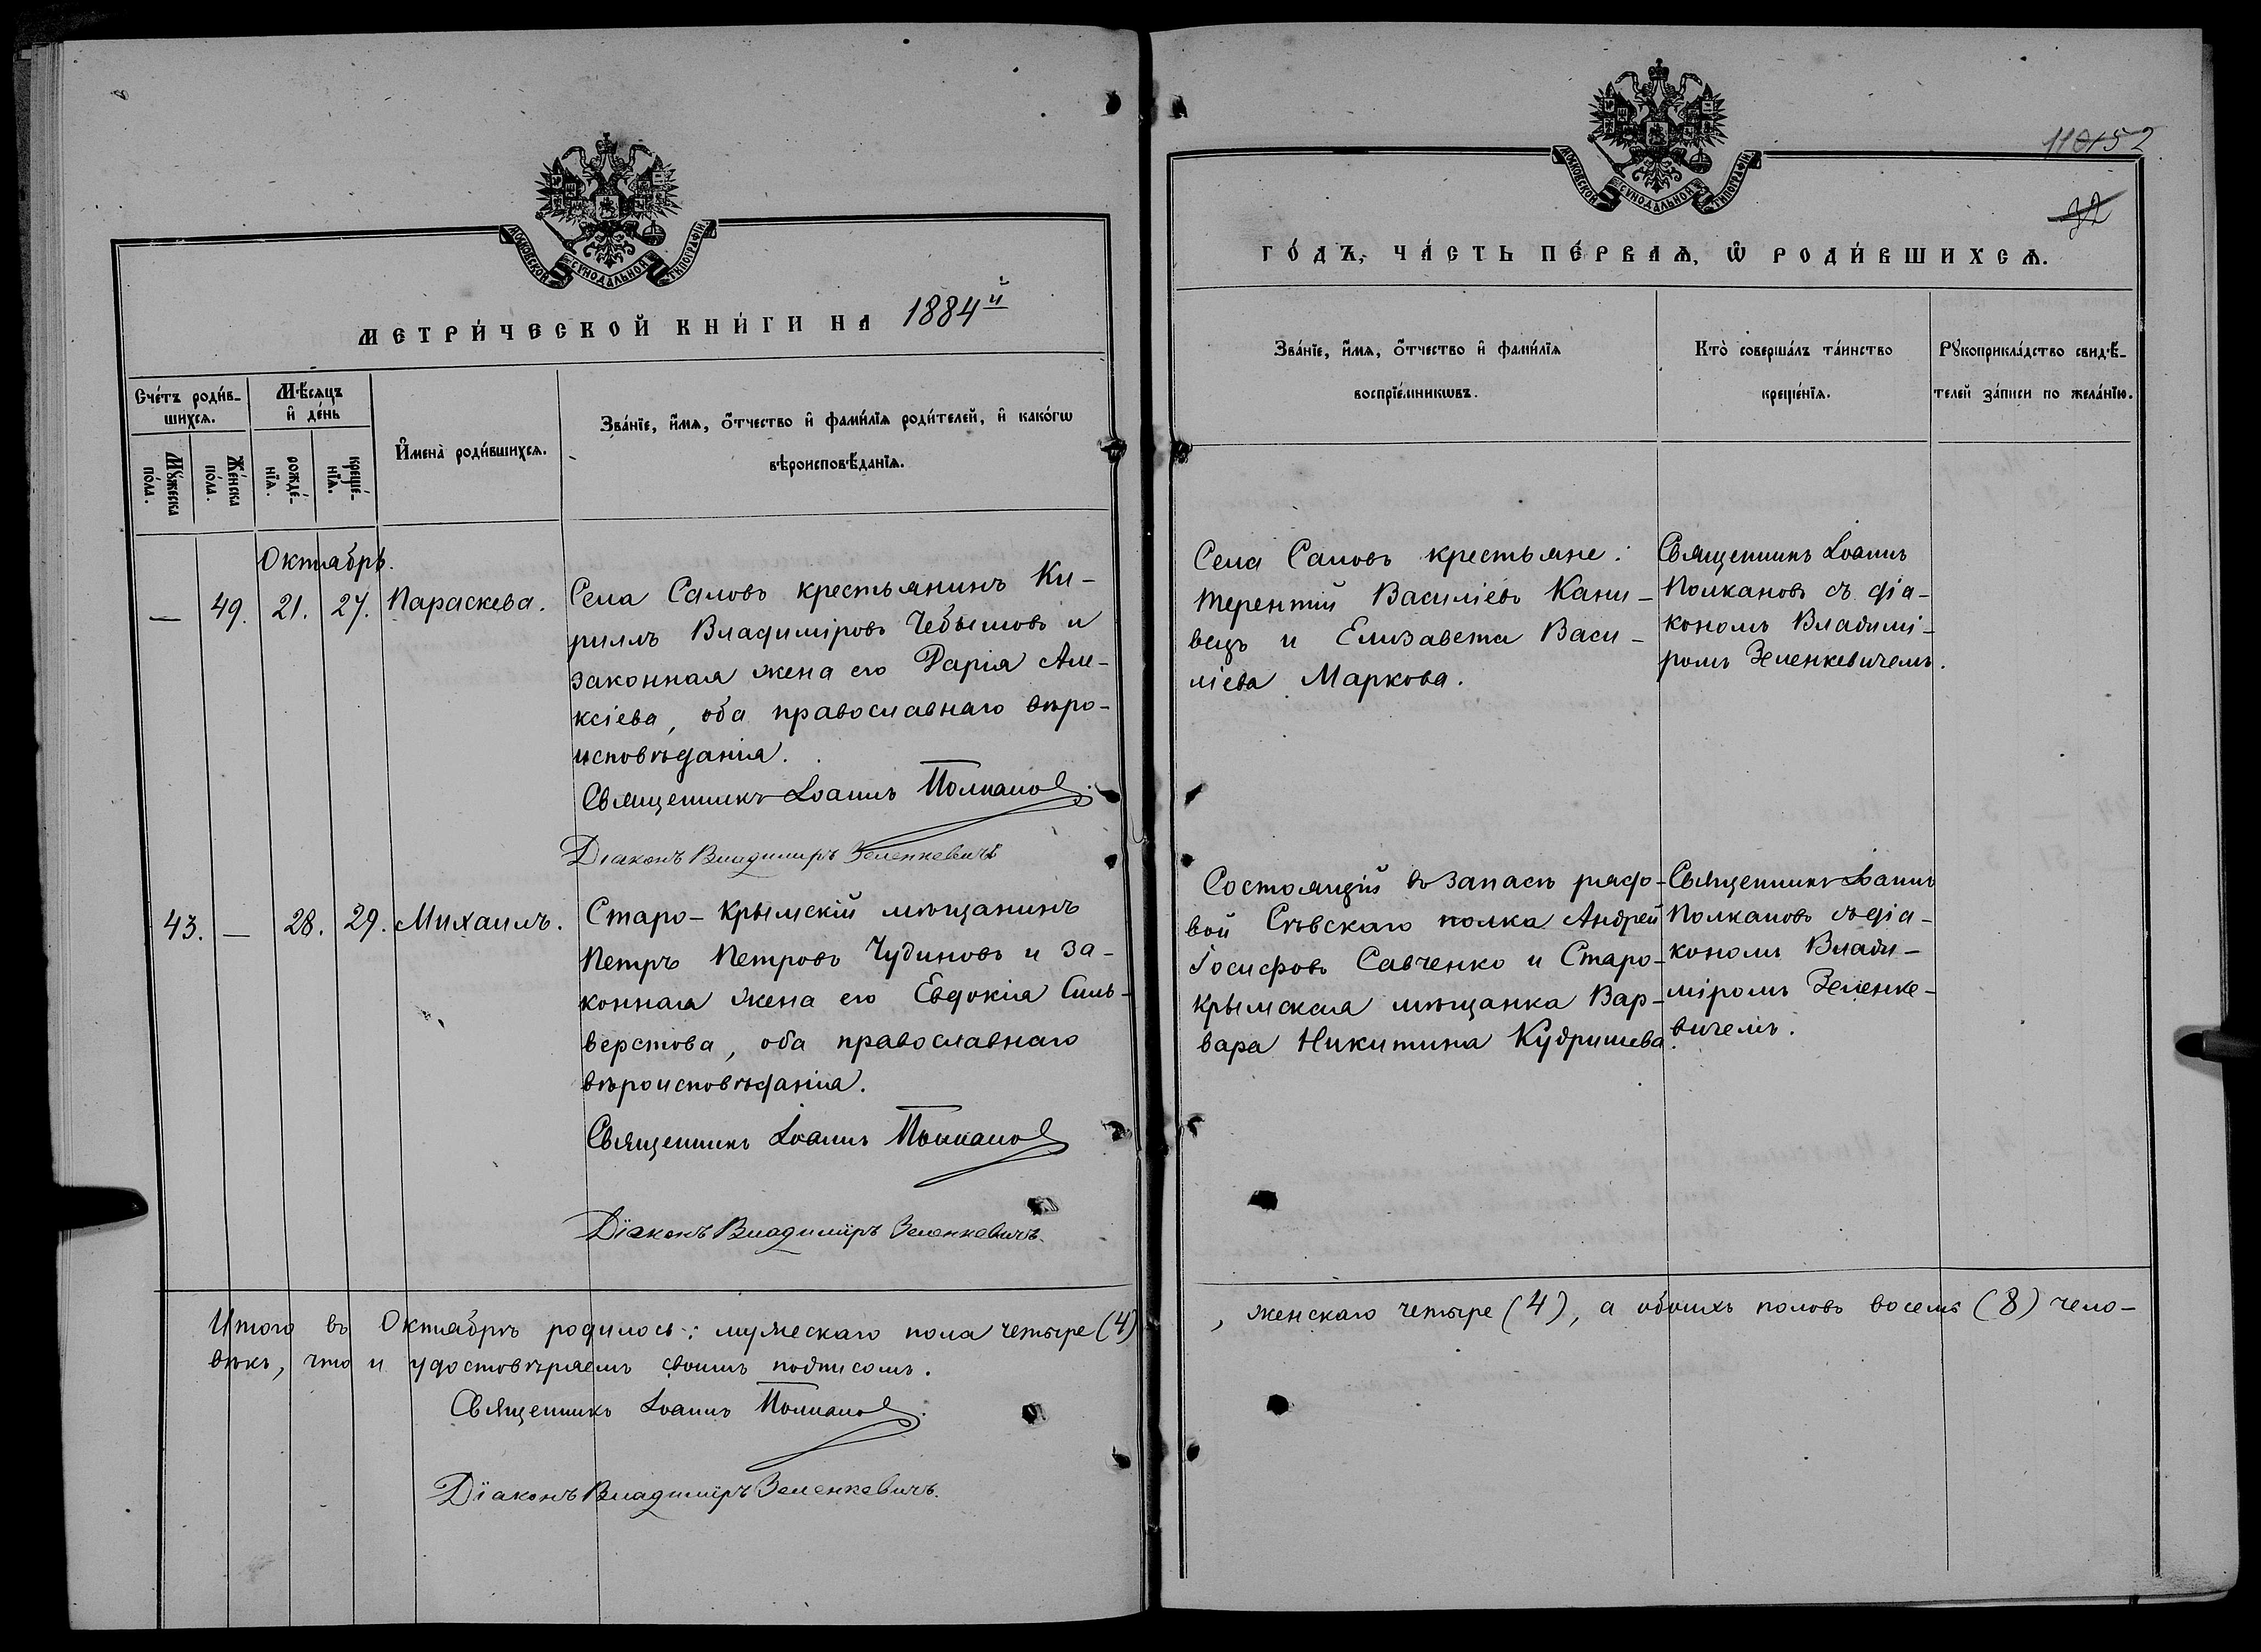 МОСКОВСКОЙ СУНОДАЛЬНОЙ ТИПОГРАФІИ
МЕТРИ́ЧЕСКОЙ КНИ́ГИ НА 1884й
Сче́тъ роди́в-
шихся.
Мѣ́сяцъ
и҆ де́нь
Мꙋ́жеска
по́ла.
Же́нска
по́ла.
рожде́-
нїя.
креще́-
нїя.
И҆мена̀ роди́вшихся.
Зва́нїе, и҆́мя, ѻ҆́тчество и҆ фами́лїя роди́телей, и҆ како́гѡ
вѣроисповѣ́данїя.
Октябрь.
— 49. 21. 27. Параскева.
Села Саловъ крестьянинъ Ки-
риллъ Владиміровъ Чебышовъ и
законная жена его Дарія Але-
ксіева, оба православнаго вѣро-
исповѣданія.
Священникъ Іоаннъ Полкановъ
Діаконъ Владимиръ Зеленкевичъ
43. — 28. 29. Михаилъ.
Старо-Крымскій мѣщанинъ
Петръ Петровъ Чудиновъ и за-
конная жена его Евдокія Силь-
верстова, оба православнаго
вѣроисповѣданія.
Священникъ Іоаннъ Полкановъ
Діаконъ Владиміръ Зеленкевичъ.
Итого въ Октябрѣ родилось: мужескаго пола четыре (4)
вѣкъ, что и удостовѣряемъ своимъ подписомъ.
Священникъ Іоаннъ Полкановъ.
Діаконъ Владиміръ Зеленкевичъ.
МОСКОВСКОЙ СУНОДАЛЬНОЙ ТИПОГРАФІИ
110152
32
ГО́ДЪ, ЧА́СТЬ ПЕ́РВАѦ, Ѡ҆ РОДИ́ВШИХСѦ.
Зва́нїе, и҆́мя, ѻ҆́тчество и҆ фами́лїя
воспрїе́мникѡвъ.
Кто̀ соверша́лъ та́инство
креще́нїя.
Рꙋкоприкла́дство свидѣ́-
телей за́писи по жела́нїю.
Села Саловъ крестьяне:
Терентій Василіевъ Кани-
вецъ и Елизавета Васи-
ліева Маркова.
Священникъ Іоаннъ
Полкановъ съ діа-
кономъ Владимі-
ромъ Зеленкевичемъ.
Состоящій въ запасѣ рядо-
вой Сѣвскаго полка Андрей
Іосифовъ Савченко и Старо-
крымская мѣщанка Вар-
вара Никитина Кудришева.
Священникъ Іоаннъ
Полкановъ съ діа-
кономъ Влади-
міромъ Зеленке-
вичемъ.
, женскаго четыре (4), а обоихъ половъ восемь (8) чело-